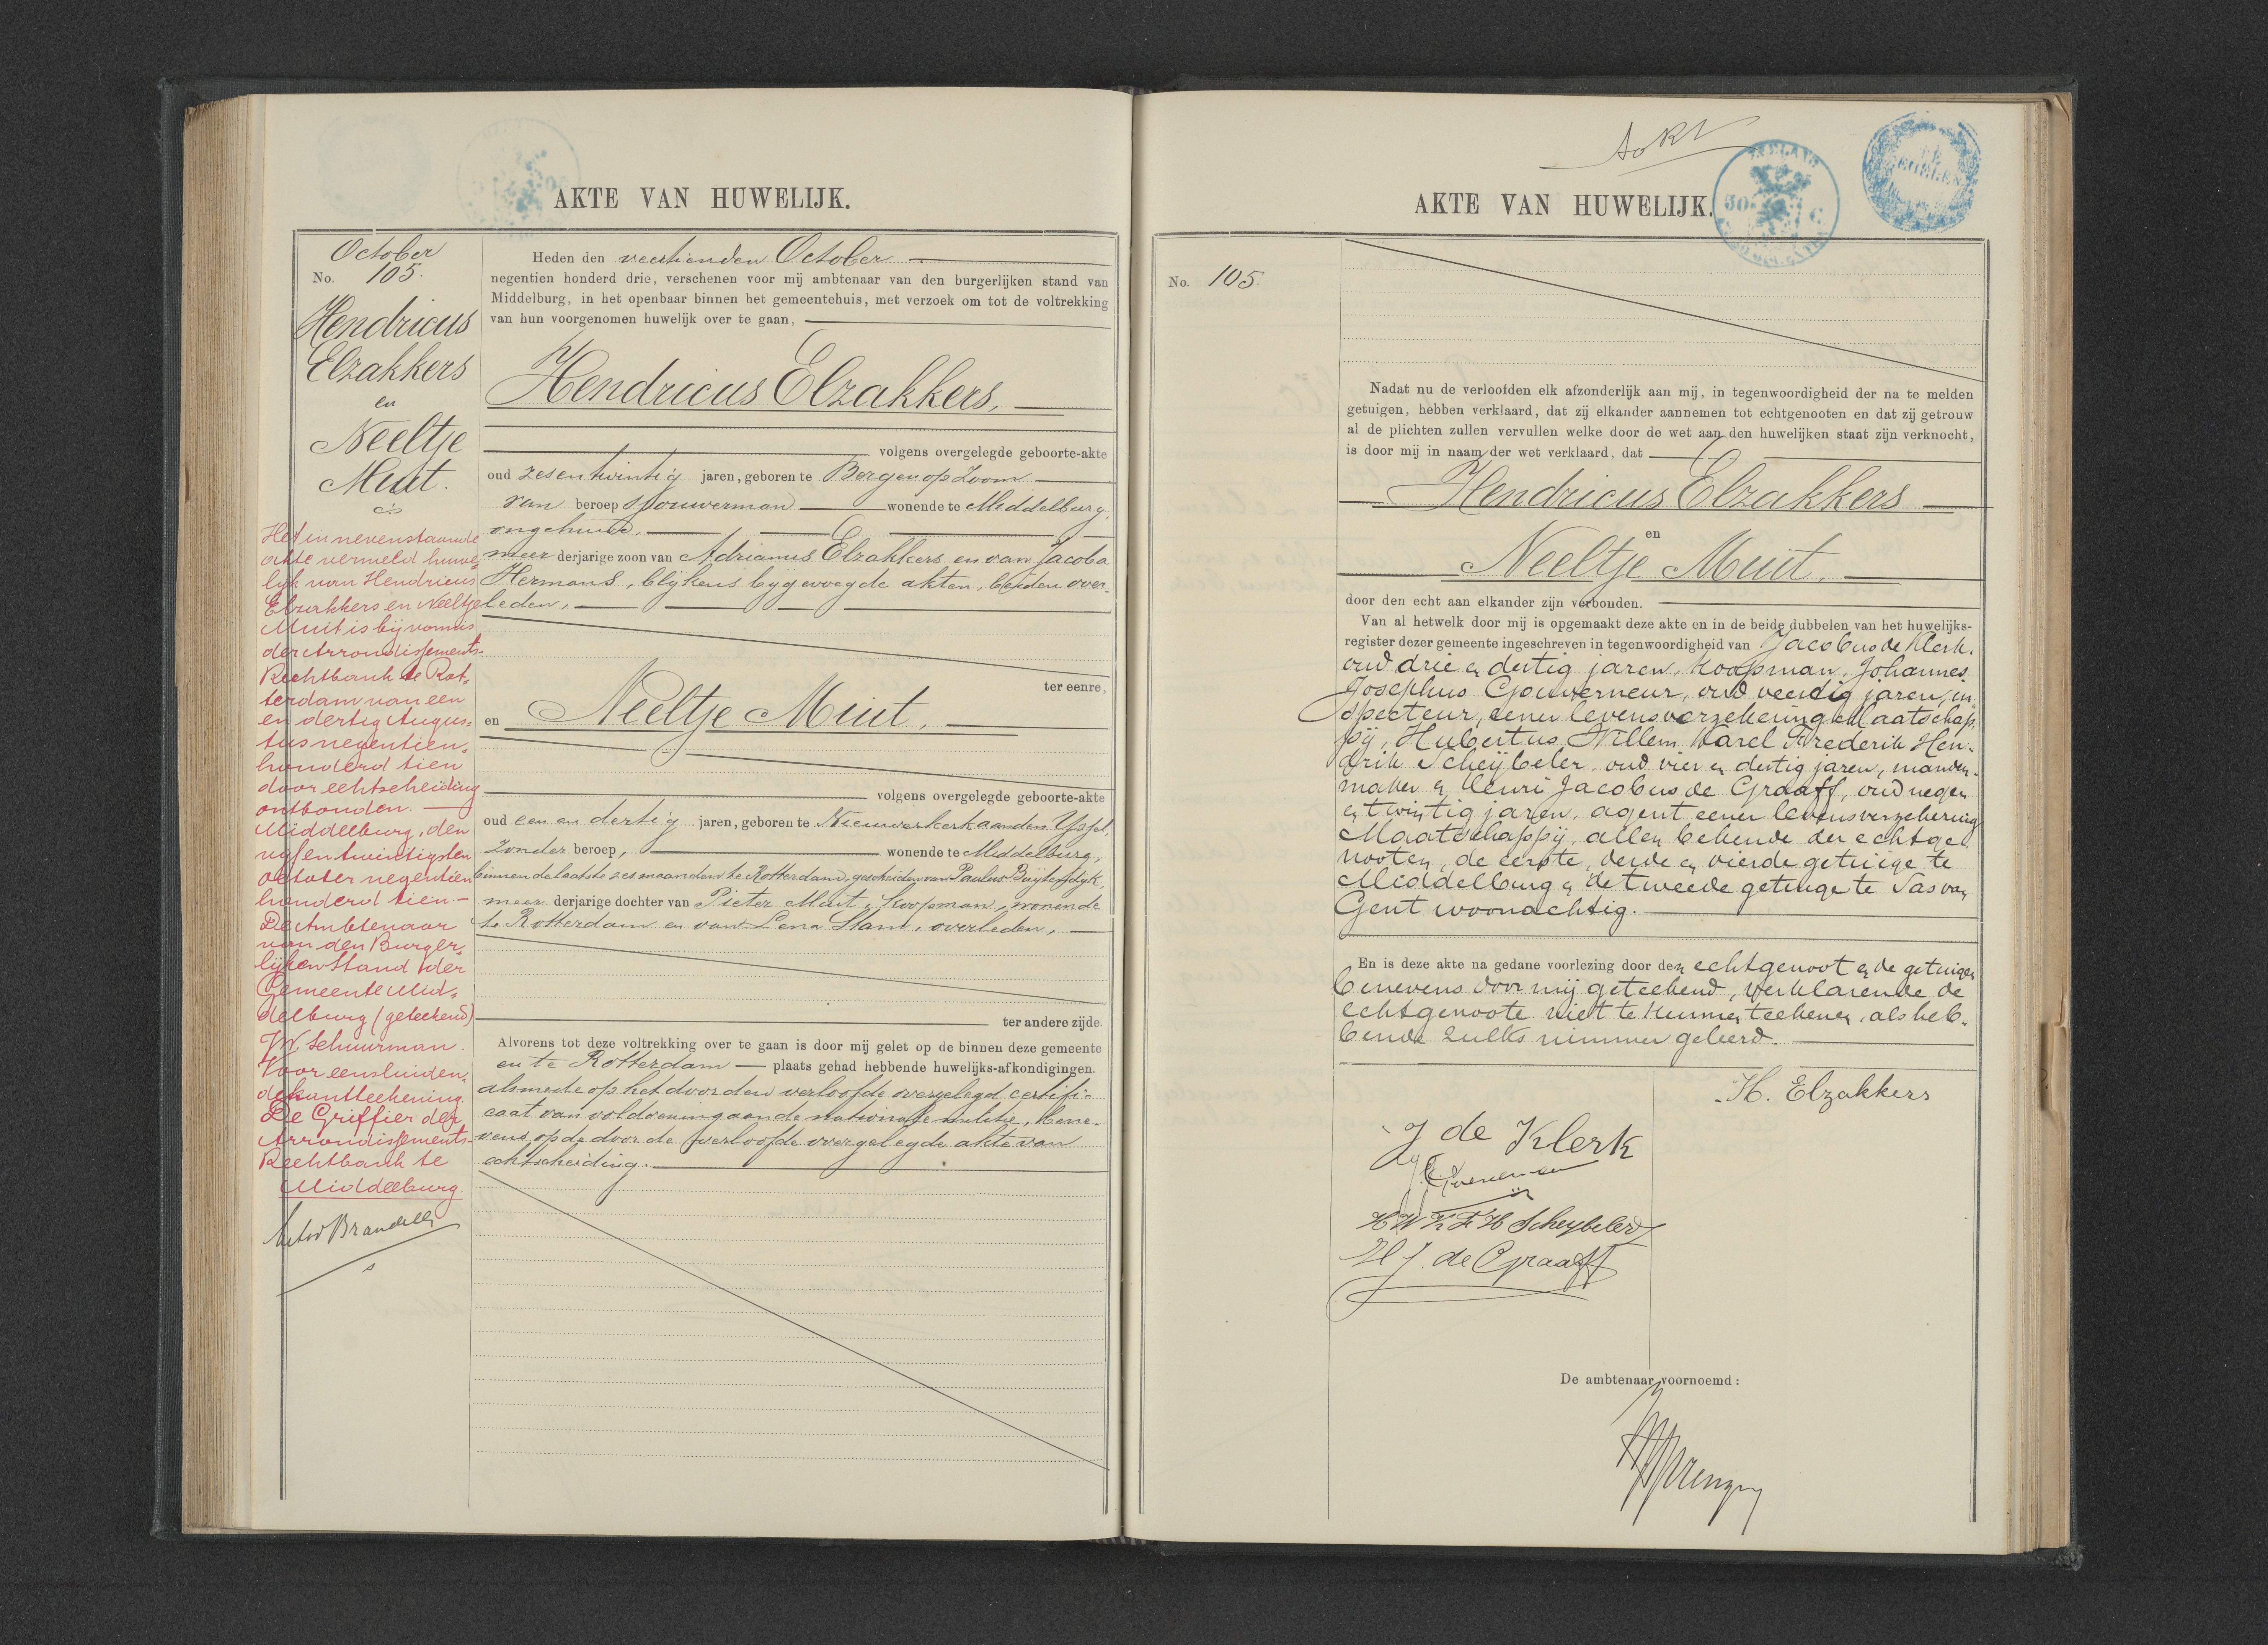 AKTE VAN HUWELIJK.
October
No. 105.
Hendricus
Elzakkers
en
Neeltje
Muit.
Het in nevenstaande
akte vermeld huwe-
lijk van Hendricus
Elzakkers en Neeltje
Muit is bij vonnis
der Arrondissements-
Rechtbank te Rot-
terdam van een
en dertig Augus-
tus negentien-
honderd tien
door echtscheiding
ontbonden.
Middelburg, den
vijf en twintigsten
october negentien
honderd tien
De Ambtenaar
van den Burger-
lijken Stand der
Gemeente Mid-
delburg (geteekend)
Schuurman.
Voor eensluiden-
de kantteekening
De Griffier der
Arrondissements-
Rechtbank te
Middelburg.
Heden den veertienden October
negentien honderd drie, verschenen voor mij ambtenaar van den burgerlijken stand van
Middelburg, in het openbaar binnen het gemeentehuis, met verzoek om tot de voltrekking
van hun voorgenomen huwelijk over te gaan,
Hendricus Elzakkers,
volgens overgelegde geboorte-akte
oud zesentwintig jaren, geboren te Bergen op Zoom
van beroep sjouwerman wonende te Middelburg,
ongehuwd,
meerderjarige zoon van Adrianus Elzakkers en van Jacoba
Hermans, blijkens bijgevoegde akten, beiden over-
leden,
ter eenre,
en Neeltje Muit,
volgens overgelegde geboorte-akte
oud een en dertig jaren, geboren te Nieuwerkerk aan den IJssel,
zonder beroep, wonende te Middelburg,
binnen de laatste zes maanden te Rotterdam, gescheiden van Paulus Buijtendijk,
meerderjarige dochter van Pieter Muit, koopman, wonende
te Rotterdam en van Lena Stam, overleden,
ter andere zijde.
Alvorens tot deze voltrekking over te gaan is door mij gelet op de binnen deze gemeente
en te Rotterdam plaats gehad hebbende huwelijks-afkondigingen.
alsmede op het door den verloofde overgelegd certifi-
caat van voldoening aan de nationale militie, bene-
vens op de door de verloofde overgelegde akte van
echtscheiding.
AKTE VAN HUWELIJK.
No. 105.
Nadat nu de verloofden elk afzonderlijk aan mij, in tegenwoordigheid der na te melden
getuigen, hebben verklaard, dat zij elkander aannemen tot echtgenooten en dat zij getrouw
al de plichten zullen vervullen welke door de wet aan den huwelijken staat zijn verknocht,
is door mij in naam der wet verklaard, dat
Hendricus Elzakkers
en
Neeltje Muit.
door den echt aan elkander zijn verbonden.
Van al hetwelk door mij is opgemaakt deze akte en in de beide dubbelen van het huwelijks-
register dezer gemeente ingeschreven in tegenwoordigheid van Jacobus de Klerk,
oud drie en dertig jaren, koopman, Johannes
Josephus Gouverneur, oud veertig jaren, in-
specteur, eener levensverzekering Maatschap-
pij, Hubertus Willem Karel Frederik Hen-
drik Scheijbeler oud vier en dertig jaren, manden-
maker en Henri Jacobus de Graaff, oud negen
en twintig jaren, agent eener levensverzekering
Maatschappij, allen bekende der echtge-
nooten, de eerste, derde en vierde getuige te
Middelburg en de tweede getuige te Sas van
Gent woonachtig.
En is deze akte na gedane voorlezing door den echtgenoot en de getuigen
benevens door mij geteekend, verklarende de
echtgenoote niet te kunnen teekenen, als heb-
bende zulks nimmer geleerd.
H. Elzakkers
J de Klerk
H W K F H Scheybeler
H J. de Graaff
De ambtenaar voornoemd: